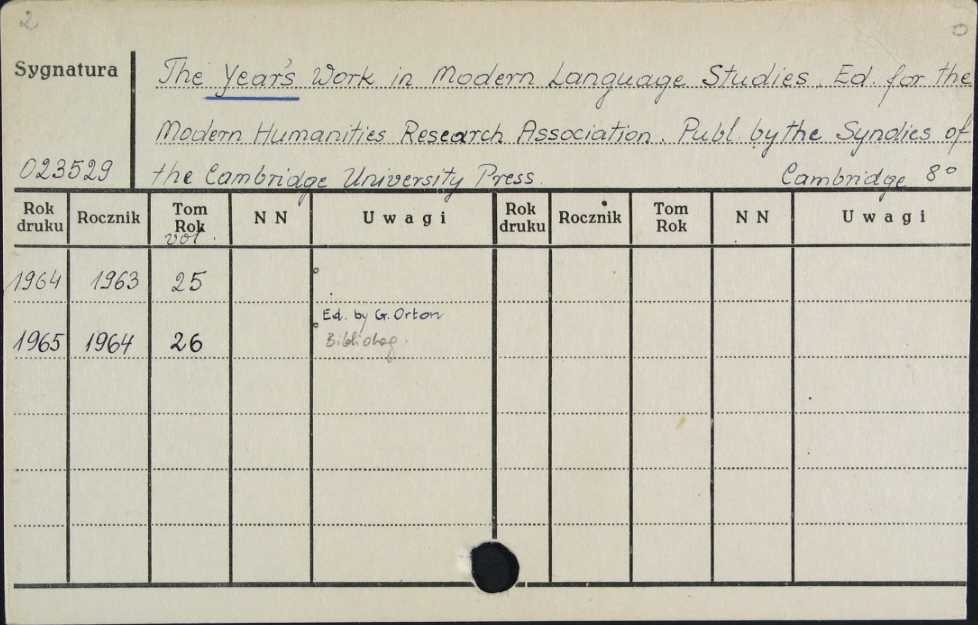 2
Sygnatura
The Year's Work in Modern Language Studies. Ed. for the
Modern Humanities Research Association. Publ. by the Syndies of
023529 the Cambridge University Press. Cambridge 8°
Rok druku Rocznik Tom Rok vol. NN Uwagi Rok druku Rocznik Tom Rok NN Uwagi
1964 1963 25
Ed. by G. Orton
1965 1964 26 Bibliolog.